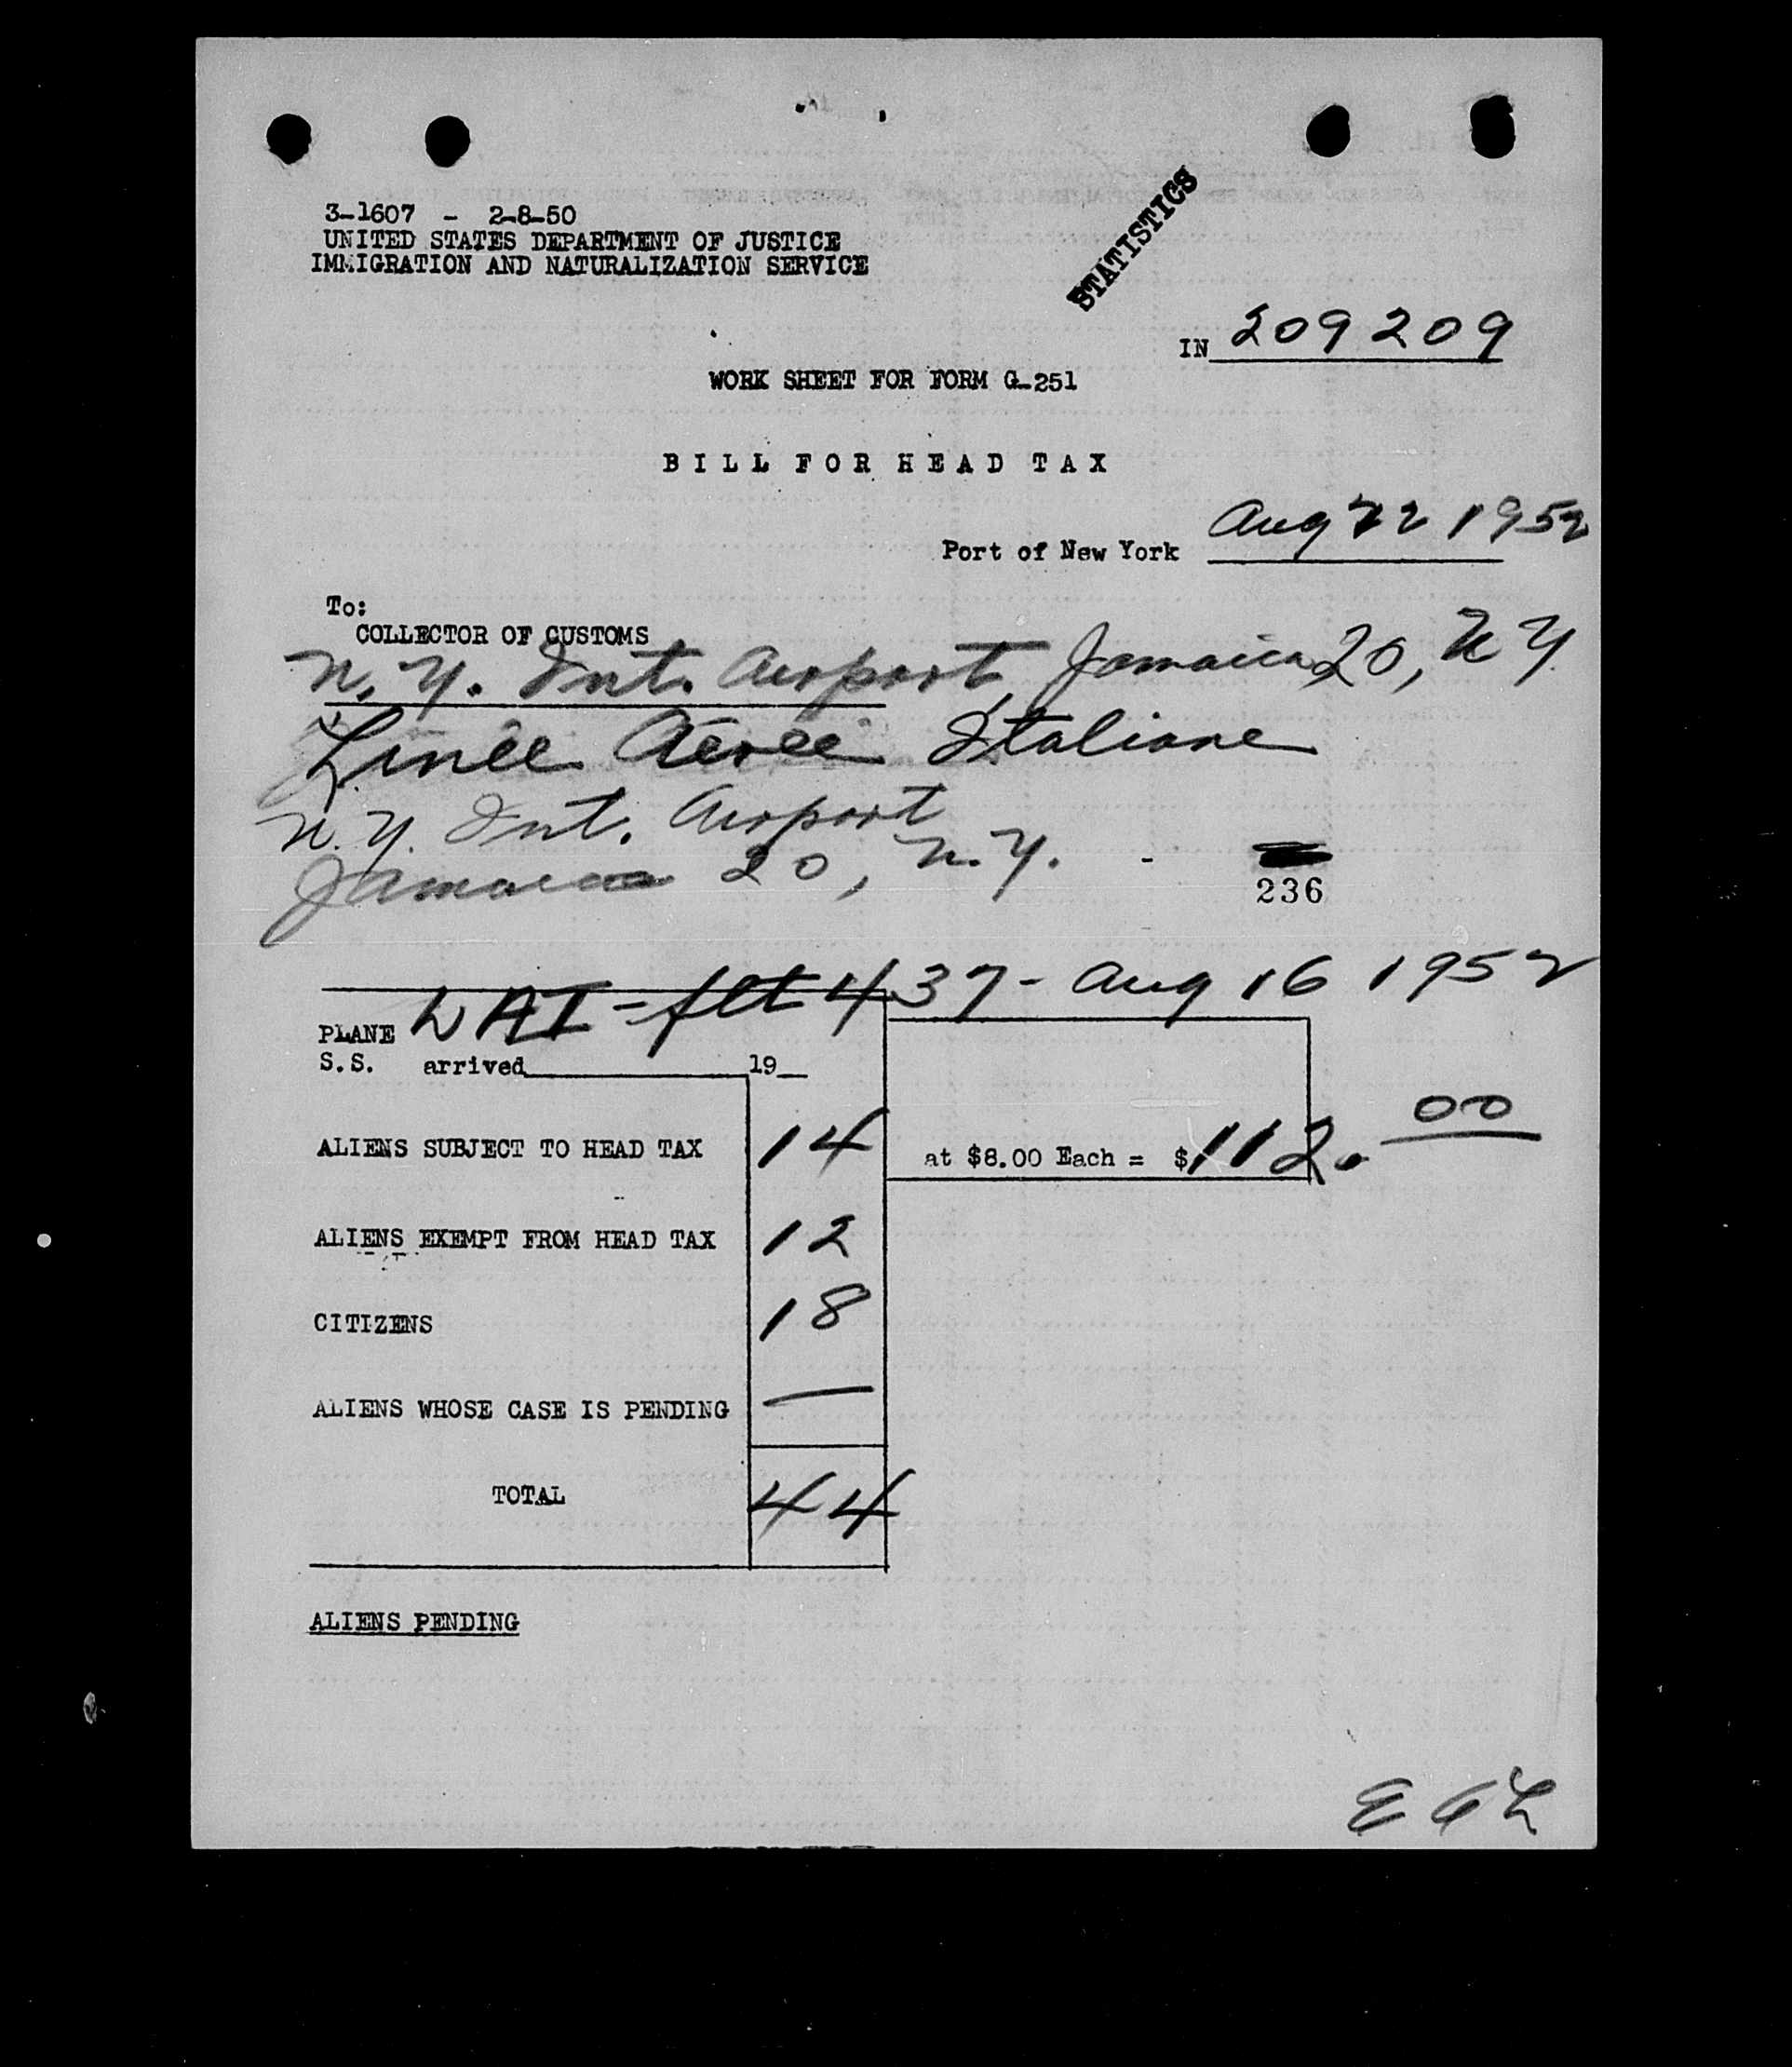 3-1607 - 2-8-50
UNITED STATES DEPARTMENT OF JUSTICE
IMMIGRATION AND NATURALIZATION SERVICE
STATISTICS
IN 209209
WORK SHEET FOR FORM G-251
BILL FOR HEAD TAX
Port of New York Aug 22 1952
To:
COLLECTOR OF CUSTOMS
N.Y. Int. Airport, Jamaica 20, N Y.
Linee Aeree Italiane
N.Y. Int. Airport
Jamaica 20, N.Y.
236
PLANE LAI - flt 437 - Aug 16 1952
S.S. arrived 19
ALIENS SUBJECT TO HEAD TAX 14 at $8.00 Each = $112.00
ALIENS EXEMPT FROM HEAD TAX 12
CITIZENS 18
ALIENS WHOSE CASE IS PENDING —
TOTAL 44
ALIENS PENDING